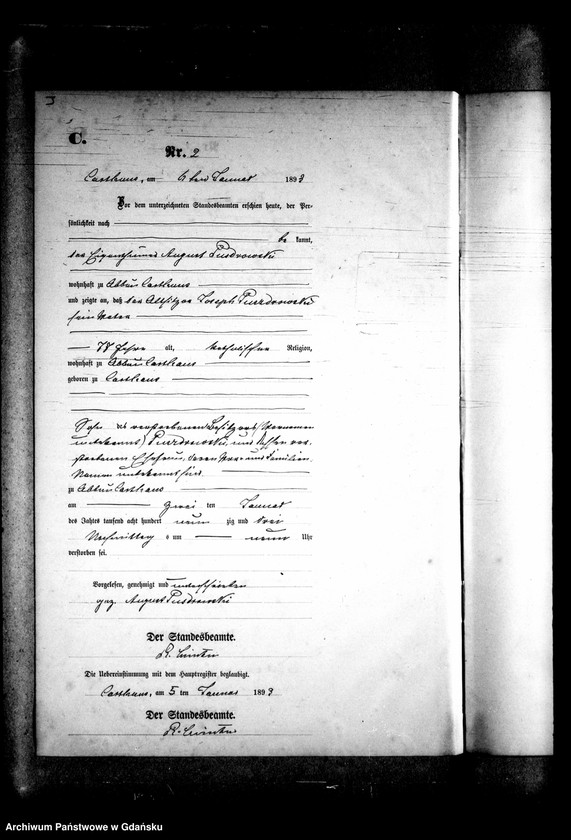 C.
Nr. 2
Carthaus, am ten Januar 1893
Vor dem unterzeichneten Standesbeamten erschien heute, der Per-
sönlichkeit nach
be kannt,
der Eigenthümer August
wohnhaft zu Abbau Carthaus
und zeigte an, daß der Altsitzer Joseph
sein Vater
78 Jahre alt, katholischer Religion,
wohnhaft zu Abbau Carthaus
geboren zu Carthaus
Sohn des verstorbenen Besitzers (Vornamen
unbekannt) und dessen ver-
storbenen Ehefrau, deren Vor- und Familien-
Namen unbekannt sind
zu Abbau Carthaus
am zwei ten Januar
des Jahres tausend acht hundert neun zig und drei
Nachmittags um neun Uhr
verstorben sei.
Vorgelesen, genehmigt und unterschrieben
gez. August
Der Standesbeamte.
Die Uebereinstimmung mit dem Hauptregister beglaubigt.
Carthaus, am 5 ten Januar 1893
Der Standesbeamte.
Archiwum Państwowe w Gdańsku